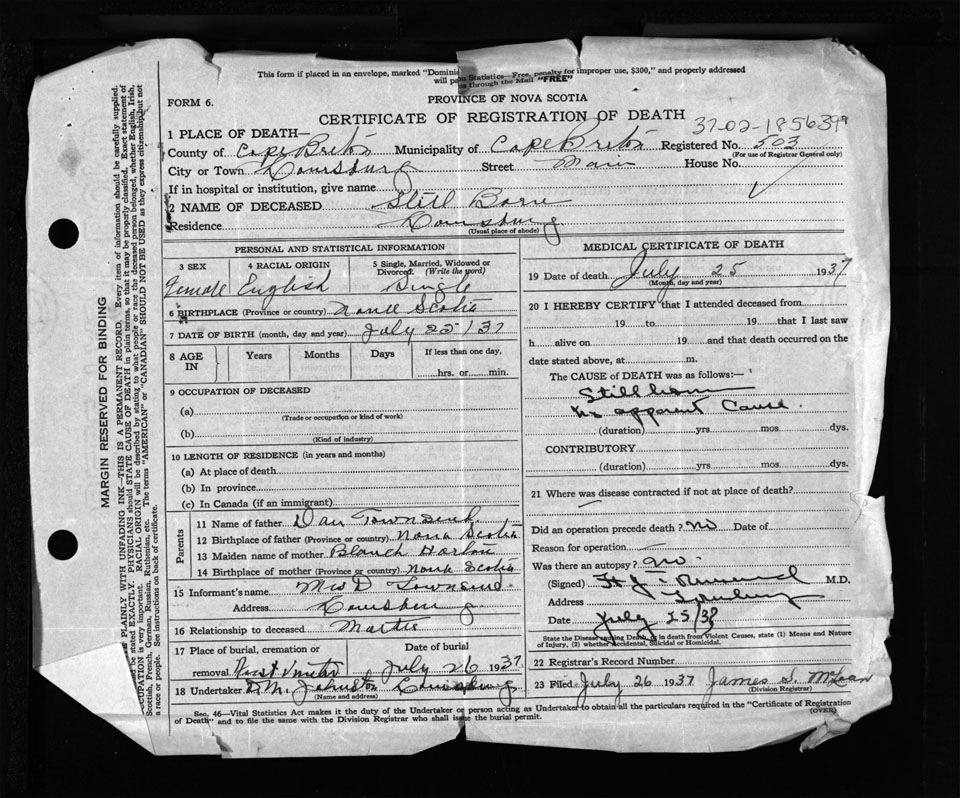 This form if placed in an envelope, marked "Dominion Statistics—Free, penalty for improper use, $300," and properly addressed
will pass through the Mail "FREE"
FORM 6.
PROVINCE OF NOVA SCOTIA
CERTIFICATE OF REGISTRATION OF DEATH
37-02-185639
1 PLACE OF DEATH—
County of Cape Breton Municipality of Cape Breton Registered No. 503
(For use of Registrar General only)
City or Town Louisburg Street Main House No.
If in hospital or institution, give name
2 NAME OF DECEASED Still Born
Residence Louisburg
(Usual place of abode)
PERSONAL AND STATISTICAL INFORMATION
3 SEX 4 RACIAL ORIGIN 5 Single, Married, Widowed or Divorced. (Write the word)
Female English Single
6 BIRTHPLACE (Province or country) Nova Scotia
7 DATE OF BIRTH (month, day and year) July 25/37
8 AGE IN Years Months Days If less than one day,
hrs. or min.
9 OCCUPATION OF DECEASED
(a)
(Trade or occupation or kind of work)
(b)
(Kind of industry)
10 LENGTH OF RESIDENCE (in years and months)
(a) At place of death
(b) In province
(c) In Canada (if an immigrant)
Parents
11 Name of father Dan Townsend
12 Birthplace of father (Province or country) Nova Scotia
13 Maiden name of mother Blanch Horton
14 Birthplace of mother (Province or country) Nova Scotia
15 Informant's name Mrs D. Townsend
Address Louisburg
16 Relationship to deceased
17 Place of burial, cremation or Date of burial
removal July 26 1937
18 Undertaker D.M. Johnston Louisburg
(Name and address)
MEDICAL CERTIFICATE OF DEATH
19 Date of death July 25 1937
(Month, day and year)
20 I HEREBY CERTIFY that I attended deceased from
19 to 19 that I last saw
h alive on 19 and that death occurred on the
date stated above, at m.
The CAUSE of DEATH was as follows:—
Still born
no apparent Cause.
(duration) yrs. mos. dys.
CONTRIBUTORY
(duration) yrs. mos. dys.
21 Where was disease contracted if not at place of death?
Did an operation precede death? no Date of
Reason for operation
Was there an autopsy? no
(Signed) M.D.
Address Louisburg
Date July 25/37
State the Disease causing Death, or in death from Violent Causes, state (1) Means and Nature
of Injury, (2) whether Accidental, Suicidal or Homicidal.
22 Registrar's Record Number
23 Filed July 26 1937 James S. McLean
(Division Registrar)
Sec. 46—Vital Statistics Act makes it the duty of the Undertaker or person acting as Undertaker to obtain all the particulars required in the "Certificate of Registration
of Death" and to file the same with the Division Registrar who shall issue the burial permit.
(OVER)
MARGIN RESERVED FOR BINDING
PLAINLY WITH UNFADING INK—THIS IS A PERMANENT RECORD. Every item of information should be carefully supplied.
be stated EXACTLY. PHYSICIANS should STATE CAUSE OF DEATH in plain terms, so that it may be properly classified. Exact statement of
OCCUPATION is very important. RACIAL ORIGIN will be described by stating to what people or race the deceased person belonged, whether English, Irish,
Scottish, French, German, Russian, Ruthenian, etc. The terms "AMERICAN" or "CANADIAN" SHOULD NOT BE USED as they express citizenship but not
a race or people. See instructions on back of certificate.